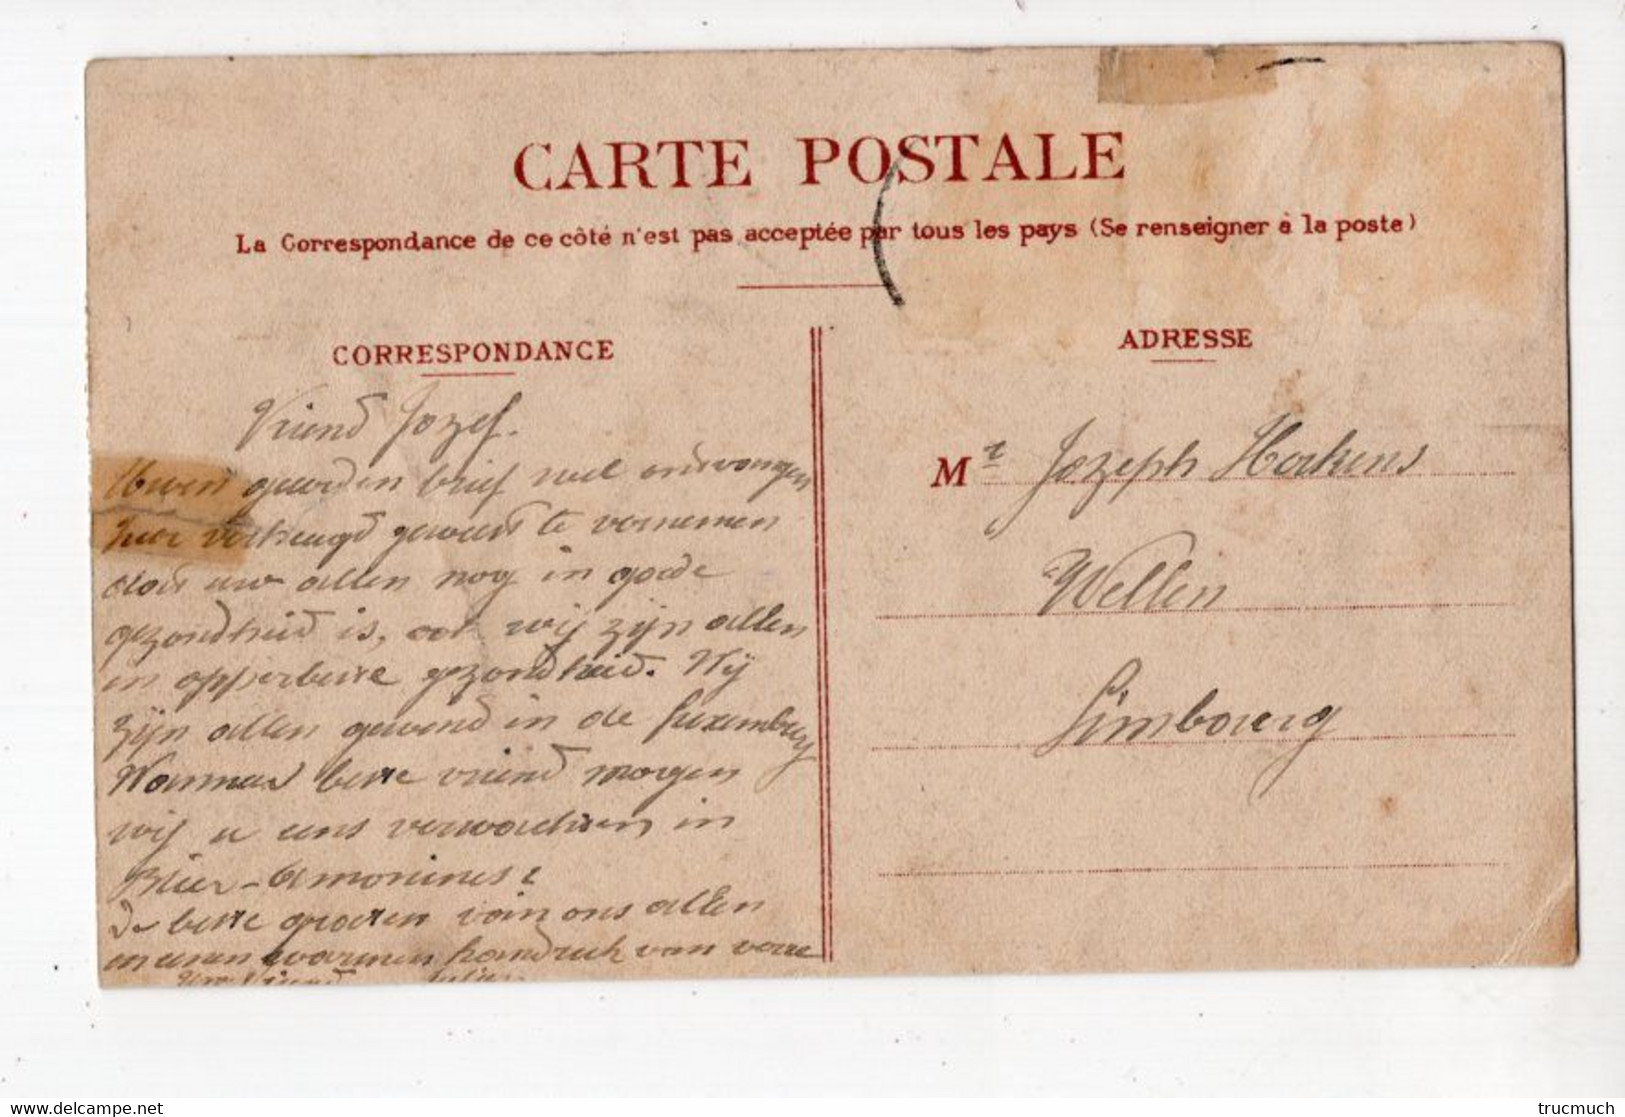 CARTE POSTALE
La Correspondance de ce côté n'est pas acceptée par tous les pays (Se renseigner à la poste)
CORRESPONDANCE
ADRESSE
Vriend Jozef.
Uwen goeden brief wel ontvangen
zeer verheugd geweest te vernemen
dat uw allen nog in goede
gezondheid is, ook wij zijn allen
in opperbeste gezondheid. Wij
zijn allen gezond in de Luxemburg
beste vriend morgen
wij u ons verwachten in
de beste groeten van ons allen
en eenen warmen handruk van verre
Uw Vriend
Mr Jozeph Hoekens
Wellen
Limbourg
trucmuch
www.delcampe.net